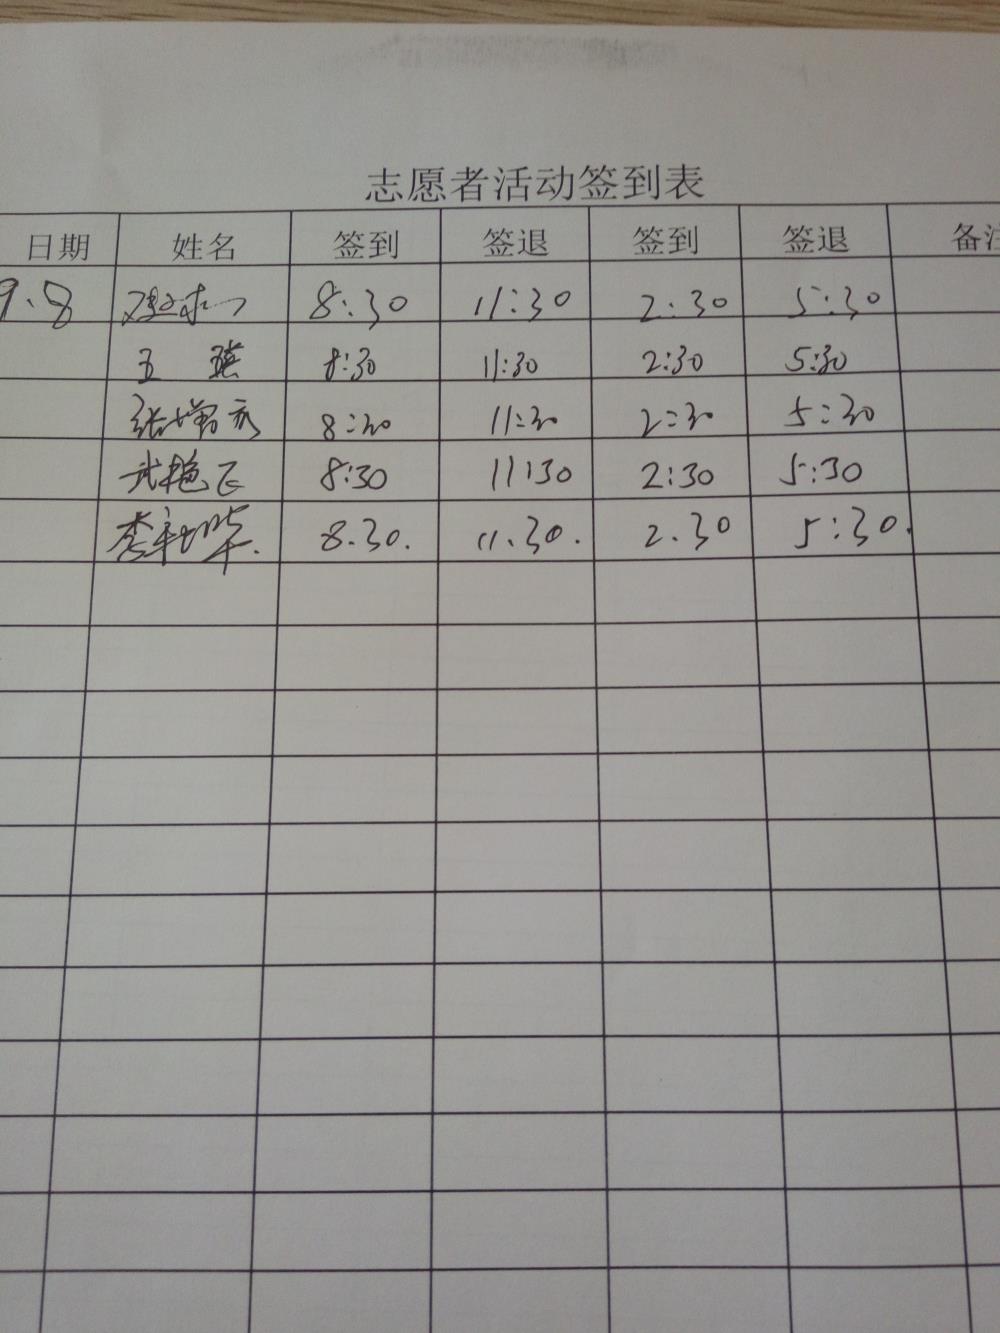 志愿者活动签到表
日期 姓名 签到 签退 签到 签退 备注
9.8 8:30 11:30 2:30 5:30
王瑛 8:30 11:30 2:30 5:30
张增 8:30 11:30 2:30 5:30
武艳飞 8:30 11:30 2:30 5:30
李 8.30. 11.30. 2.30 5:30.